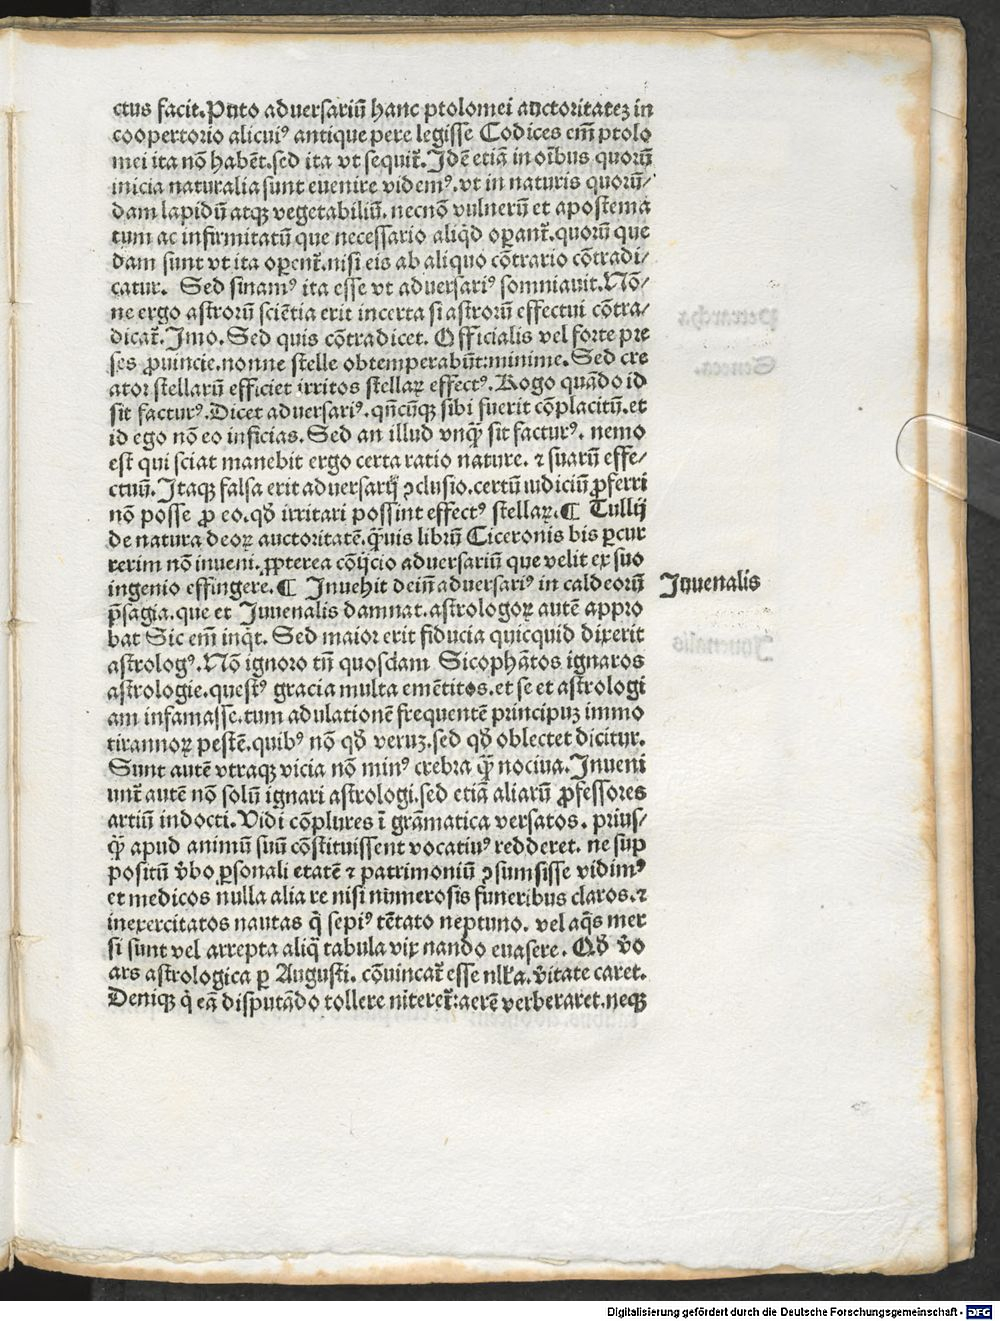 ctus facit. Puto adversariū hanc ptolomei auctoritateꝫ in
coopertorio alicuiꝰ antique pere legisse Codices em̄ ptolo
mei ita nō habēt. sed ita vt sequit᷑. Jdē etiā in oībus quorū
inicia naturalia sunt euenire videmꝰ. vt in naturis quorū⸗
dam lapidū atqꝫ vegetabiliū. necnō vulnerū et apostema
tum ac infirmitatū que necessario aliqͥd oꝑant᷑. quorū que
dam sunt vt ita oꝑent᷑. nisi eis ab aliquo cōtrario cōtradi⸗
catur. Sed sinamꝰ ita esse vt adversariꝰ somniauit. Nō⸗
ne ergo astrorū sciētia erit incerta si astrorū effectui cōtra⸗
dicat᷑. Jmo. Sed quis cōtradicet. Officialis vel forte pre
ses ꝓuincie. nonne stelle obtemperabūt: minime. Sed cre
ator stellarū efficiet irritos stellaꝝ effectꝰ. Rogo quādo id
sit facturꝰ. Dicet adversariꝰ. qn̄cūqꝫ sibi fuerit cōplacitū. et
id ego nō eo inficias. Sed an illud vnqͣꝫ sit facturꝰ. nemo
est qui sciat manebit ergo certa ratio nature. ⁊ suarū effe⸗
ctuū. Jtaqꝫ falsa erit adversarij ꝯclusio. certū iudiciū ꝓferri
nō posse ꝓ eo. qđ irritari possint effectꝰ stellaꝝ. ¶ Tullij
de natura deoꝝ auctoritatē. qͣuis librū Ciceronis bis ꝑcur
rerim nō inueni. ꝓpterea cōijcio adversariū que velit ex suo
ingenio effingere. ¶ Jnuehit dein̄ adversariꝰ in caldeorū
p̄sagia. que et Juuenalis damnat. astrologoꝝ autē appro
bat Sic em̄ inqͥt. Sed maior erit fiducia quicquid dixerit
astrologꝰ. Nō ignoro tn̄ quosdam Sicophātos ignaros
astrologie. questꝰ gracia multa emētitos. et se et astrologi
am infamasse. tum adulationē frequentē principuꝫ immo
tirannoꝝ pestē. quibꝰ nō qđ veruꝫ. sed qđ oblectet dicitur.
Sunt autē vtraqꝫ vicia nō minꝰ crebra qͣꝫ nociua. Jnueni
unt᷑ autē nō solū ignari astrologi. sed etiā aliarū ꝓfessores
artiū indocti. Vidi cōplures ī grāmatica versatos. prius⸗
qͣꝫ apud animū suū cōstituissent vocatiuꝰ redderet. ne sup
positū v̄bo ꝑsonali etatē ⁊ patrimoniū ꝯsumsisse vidimꝰ
et medicos nulla alia re nisi numerosis funeribus claros. ⁊
inexercitatos nautas qͥ sepiꝰ tētato neptuno. vel aqͥs mer
si sunt vel arrepta aliqͣ tabula vix nando euasere. Qđ v̄o
ars astrologica ꝑ Augusti. cōuincat᷑ esse nĺla. v̄itate caret.
Deniqꝫ qͥ eā disputādo tollere niteret᷑: aerē verberaret. neqꝫ
Juuenalis
Digitalisierung gefördert durch die Deutsche Forschungsgemeinschaft - DFG